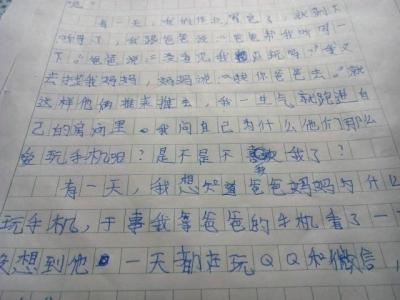 有一天，我的作业写完了，就剩下
听写了，我跟爸爸说："爸爸帮我听写一
下。"爸爸说："没看见我在玩吗？"我又
去找我妈妈，妈妈说："快你爸爸去。"就
这样他俩推来推去，我一生气就跑进自
己的房间里。我问自己为什么他们那么
爱玩手机呢？是不是不爱我了？
有一天，我想知道爸爸妈妈为什
玩手机，于事我拿爸爸的手机看了一
没想到他一天都在玩QQ和微信，